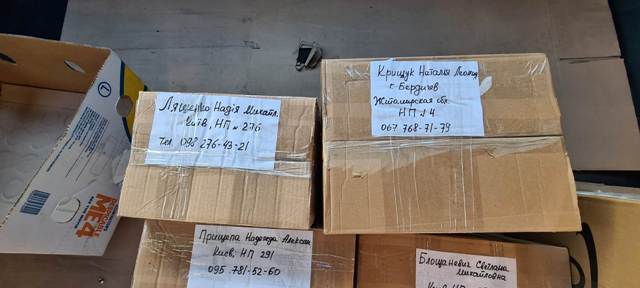 Ляшенко Надія Михайл.
Київ, НП № 276
Тел 098 276-43-21
Крищук Наталья Леонид
г. Бердичев
Житомирская обл.
НП № 4
067 768-71-79
Прищепа Надежда Алексан
Киев, НП 291
095 781-52-60
Блощаневич Светлана
Михайловна
МЕД